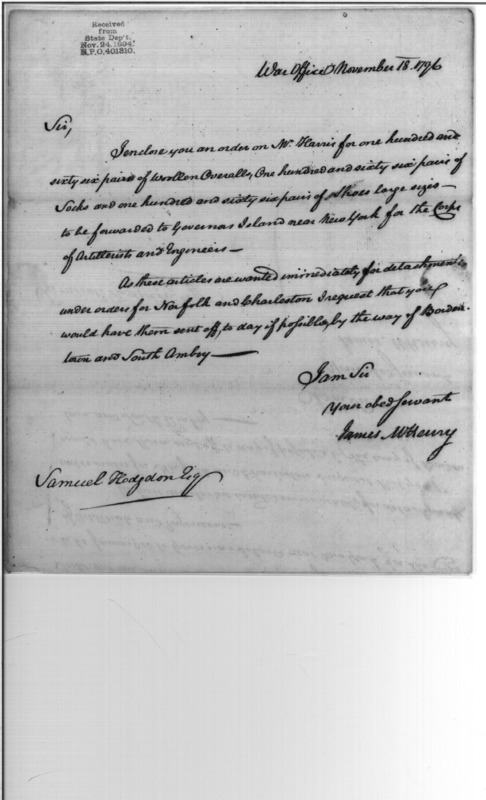 Received
from
State Dep't.
Nov. 24. 1894.
R.P.O, 401310.
War Office November 18. 1796
Sir,
I enclose you an order on Mr. Harris for one hundred and
sixty six pairs of Woollen Overalls, One hundred and sixty six pairs of
Socks and one hundred and sixty six pairs of Shoes large sizes—
to be forwarded to Governors Island near New York for the Corps
of Artillerists and Engineers—
As these articles are wanted immediately for detachments
under orders for Norfolk and Charleston I request that you
would have them sent off, to day if possible, by the way of Borden-
town and South Amboy—
I am Sir
Your obed Servant
James McHenry
Samuel Hodgdon Esq